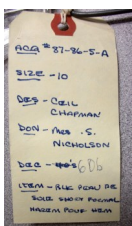 ACQ # 87-86-5-A
SIZE - 10
DES - CEIL
CHAPMAN
DON - MRS .S.
NICHOLSON
DEC - 60s
ITEM - BLK PEAU DE
SOIE SHORT FORMAL
HAREM POUF HEM